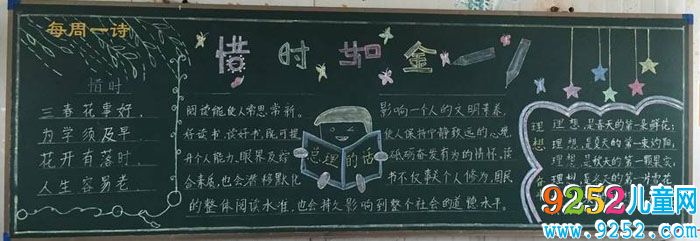 每周一诗
惜时如金
惜时
三春花事好，
为学须及早。
花开有落时，
人生容易老。
阅读能使人常思常新。
好读书、读好书，既可提
升个人能力、眼界及综
合素质，也会潜移默化
总理的话
影响一个人的文明素养，
使人保持宁静致远的心境，
砥砺奋发有为的情怀。读
书不仅事关个人修为，国民
的整体阅读水准，也会持久影响到整个社会的道德水平。
理想
理想，是春天的第一朵鲜花；
理想，是夏天的第一束灼阳；
理想，是秋天的第一颗果实；
理想，是冬天的第一片雪花
9252儿童网
www.9252.com